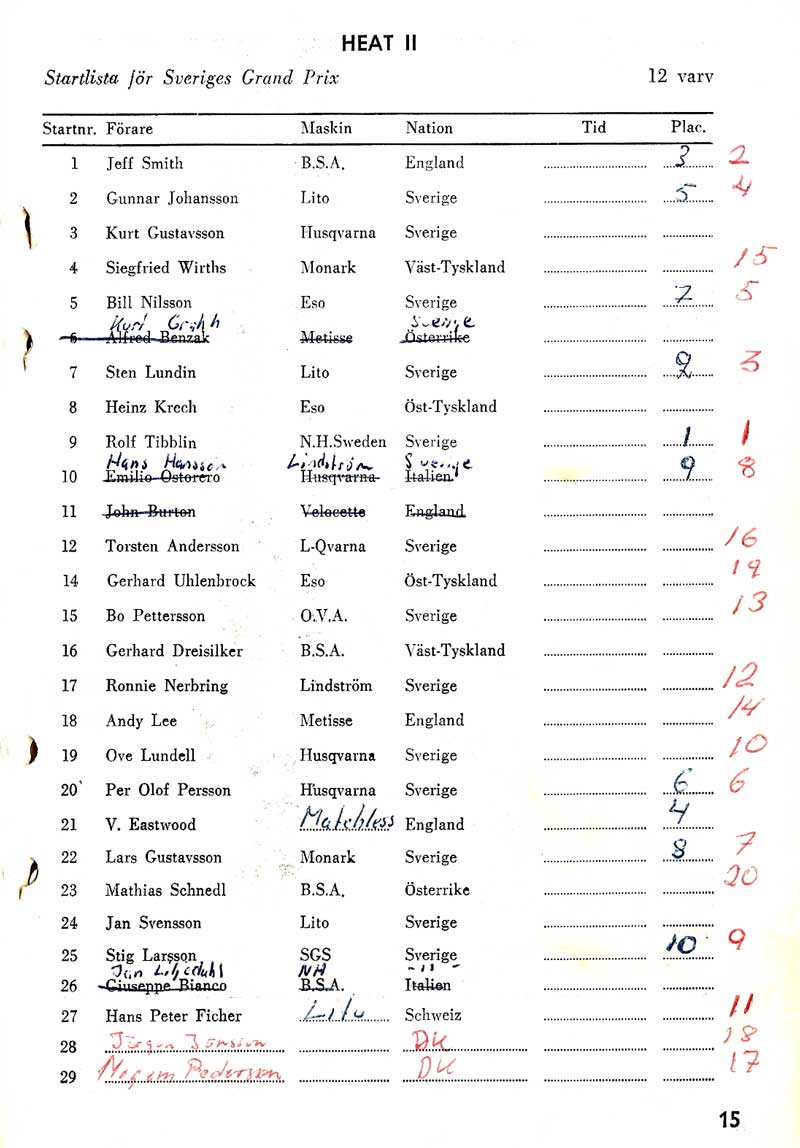 HEAT II
Startlista för Sveriges Grand Prix 12 varv
Startnr. Förare Maskin Nation Tid Plac.
1 Jeff Smith B.S.A. England 3 2
2 Gunnar Johansson Lito Sverige 5 4
3 Kurt Gustavsson Husqvarna Sverige
4 Siegfried Wirths Monark Väst-Tyskland 15
5 Bill Nilsson Eso Sverige 7 5
Kurt Sverige
6 Alfred Benzak Metisse Österrike
7 Sten Lundin Lito Sverige 2 3
8 Heinz Krech Eso Öst-Tyskland
9 Rolf Tibblin N.H.Sweden Sverige 1 1
Hans Hansson Lindström Sverige
10 Emilio Ostorero Husqvarna Italien 9 8
11 John Burton Velocette England
12 Torsten Andersson L-Qvarna Sverige 16
14 Gerhard Uhlenbrock Eso Öst-Tyskland 19
15 Bo Pettersson O.V.A. Sverige 13
16 Gerhard Dreisilker B.S.A. Väst-Tyskland
17 Ronnie Nerbring Lindström Sverige 12
18 Andy Lee Metisse England 14
19 Ove Lundell Husqvarna Sverige 10
20 Per Olof Persson Husqvarna Sverige 6 6
21 V. Eastwood Matchless England 4
22 Lars Gustavsson Monark Sverige 8 7
23 Mathias Schnedl B.S.A. Österrike 20
24 Jan Svensson Lito Sverige
25 Stig Larsson SGS Sverige 10 9
Jan NH - 11 -
26 Giuseppe Bianco B.S.A. Italien
27 Hans Peter Ficher Lito Schweiz 11
28 DK 18
29 Pedersen DK 17
15